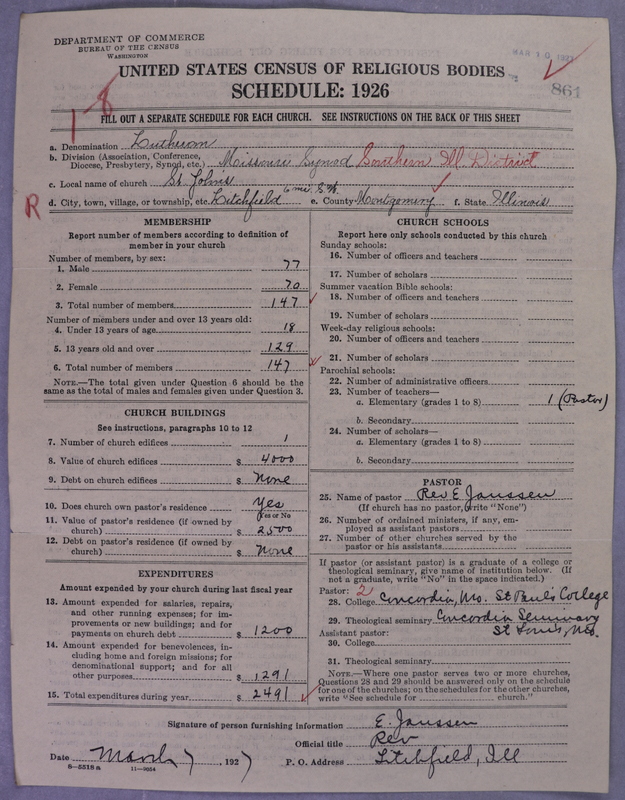 DEPARTMENT OF COMMERCE
BUREAU OF THE CENSUS
WASHINGTON
UNITED STATES CENSUS OF RELIGIOUS BODIES
SCHEDULE: 1926
861
1-8
FILL OUT A SEPARATE SCHEDULE FOR EACH CHURCH. SEE INSTRUCTIONS ON THE BACK OF THIS SHEET
a. Denomination Lutheran
b. Division (Association, Conference, Diocese, Presbytery, Synod, etc.) Missouri Synod Southern Ill. District
c. Local name of church St. Johns
R d. City, town, village, or township, etc. Litchfield 6 mi. S.W. e. County Montgomery f. State Illinois
MEMBERSHIP
Report number of members according to definition of
member in your church
Number of members, by sex:
1. Male 77
2. Female 70
3. Total number of members 147
Number of members under and over 13 years old:
4. Under 13 years of age 18
5. 13 years old and over 129
6. Total number of members 147
NOTE.—The total given under Question 6 should be
same as the total of males and females given under Question 3.
CHURCH BUILDINGS
See instructions, paragraphs 10 to 12
7. Number of church edifices 1
8. Value of church edifices $ 4000
9. Debt on church edifices $ None
10. Does church own pastor's residence Yes
Yes or No
11. Value of pastor's residence (if owned by
church) $ 2500
12. Debt on pastor's residence (if owned by
church) $ None
EXPENDITURES
Amount expended by your church during last fiscal year
13. Amount expended for salaries, repairs,
and other running expenses; for im-
provements or new buildings; and for
payments on church debt $ 1200
14. Amount expended for benevolences, in-
cluding home and foreign missions; for
denominational support; and for all
other purposes $ 1291
15. Total expenditures during year $ 2491
CHURCH SCHOOLS
Report here only schools conducted by this church
Sunday schools:
16. Number of officers and teachers
17. Number of scholars
Summer vacation Bible schools:
18. Number of officers and teachers
19. Number of scholars
Week-day religious schools:
20. Number of officers and teachers
21. Number of scholars
Parochial schools:
22. Number of administrative officers
23. Number of teachers—
a. Elementary (grades 1 to 8) 1 (Pastor)
b. Secondary
24. Number of scholars—
a. Elementary (grades 1 to 8)
b. Secondary
PASTOR
25. Name of pastor Rev E Janssen
(If church has no pastor, write "None")
26. Number of ordained ministers, if any, em-
ployed as assistant pastors
27. Number of other churches served by the
pastor or his assistants
If pastor (or assistant pastor) is a graduate of a college or
theological seminary, give name of institution below. (If
not a graduate, write "No" in the space indicated.)
Pastor: 2
28. College Concordia, Mo. St Paul's College
29. Theological seminary Concordia Seminary
Assistant pastor: St Louis, Mo.
30. College
31. Theological seminary
NOTE.—Where one pastor serves two or more churches,
Questions 28 and 29 should be answered only on the schedule
for one of the churches; on the schedules for the other churches,
write "See schedule for church."
Signature of person furnishing information E. Janssen
Official title Rev
Date March 7, 1927 P. O. Address Litchfield, Ill
8—5518 a 11—9054